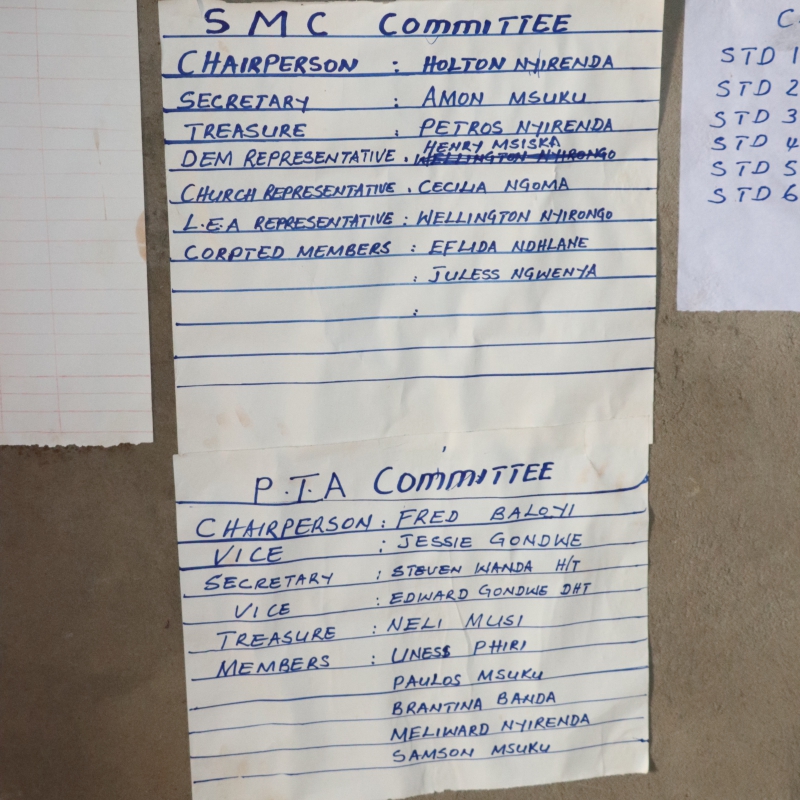 SMC COMMITTEE
CHAIRPERSON : HOLTON NYIRENDA
SECRETARY : AMON MSUKU
TREASURE : PETROS NYIRENDA
HENRY MSISKA
DEM REPRESENTATIVE . WELLINGTON NYIRONGO
CHURCH REPRESENTATIVE . CECILIA NGOMA
L.E.A REPRESENTATIVE : WELLINGTON NYIRONGO
CORPTED MEMBERS : EFLIDA NDHLANE
: JULESS NGWENYA
:
P.T.A COMMITTEE
CHAIRPERSON : FRED BALOYI
VICE : JESSIE GONDWE
SECRETARY : STEVEN WANDA H/T
VICE : EDWARD GONDWE DHT
TREASURE : NELI MUSI
MEMBERS : UNESS PHIRI
PAULOS MSUKU
BRANTINA BANDA
MELIWARD NYIRENDA
SAMSON MSUKU
C
STD 1
STD 2
STD 3
STD 4
STD 5
STD 6